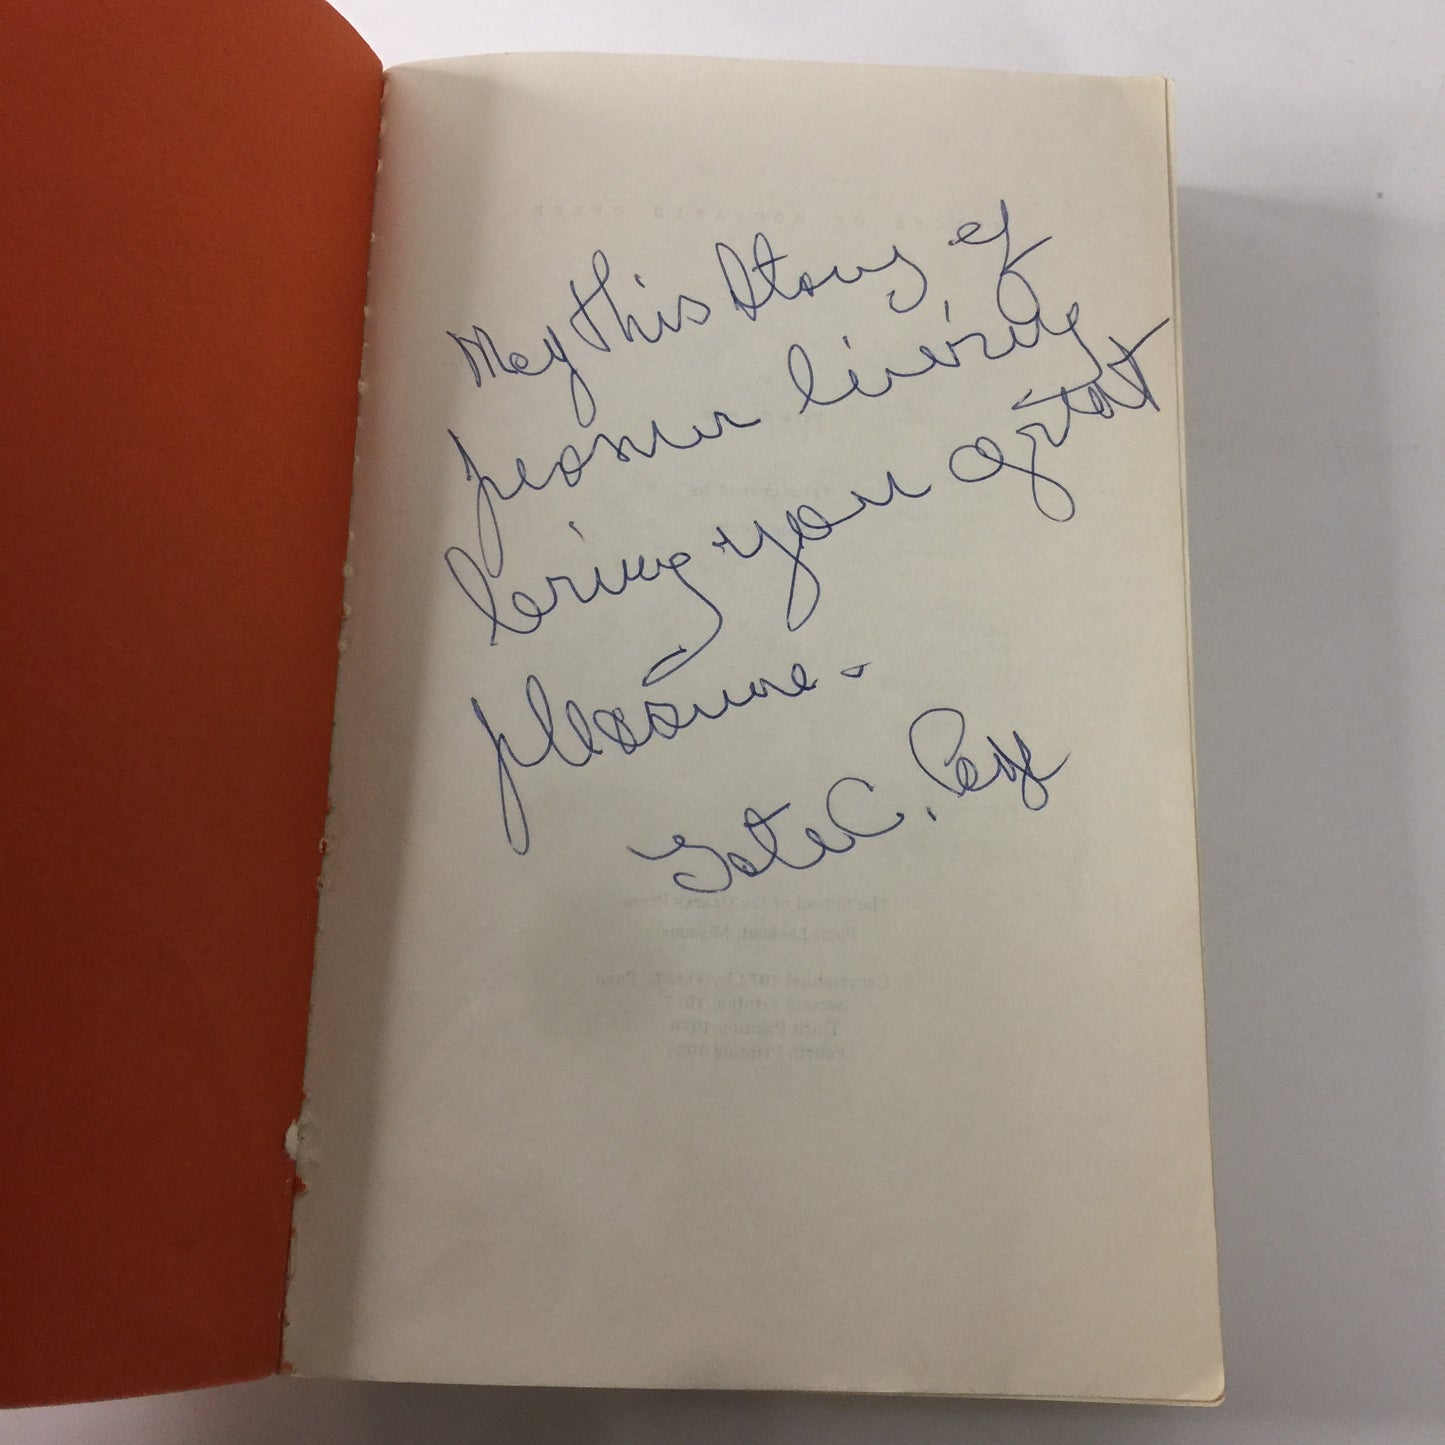 May this Story of
pioneer living
bring you great
pleasure -
Tate C. Page
The School of the Ozarks Press
Point Lookout, Missouri
Copyrighted 1972 by Tate C. Page
Second Printing 1977
Fourth Printing 1981